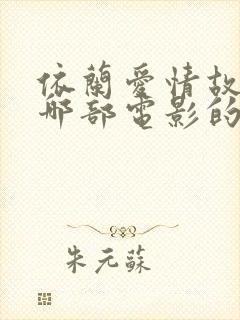 依蘭愛情故
哪部電影的
朱元蘇